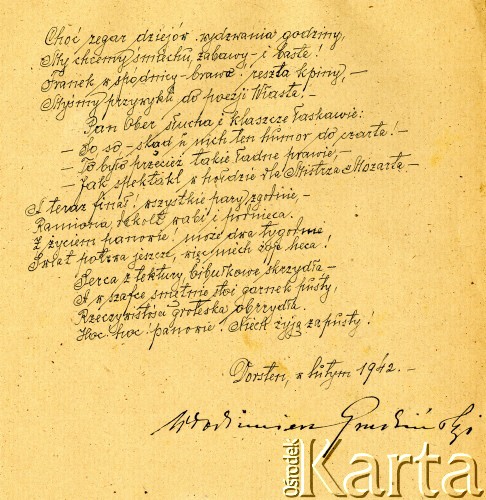 Choć zegar dziejów wydzwania godziny,
My chcemy śmiechu, zabawy - i basta!
Franek w spódnicy - brawa - reszta kpiny, -
Myśmy przywykli do poezji Wiasta! -
Pan Ober słucha i klaszcze łaskawie:
- So so - skąd u nich ten humor do czarta! -
- To było przecież takie ładne prawie, -
- Jak spektakl w hołdzie dla Mistrza Mozarta -
I teraz finał! wszystkie pary zgodnie, -
Ramiona, dekolt wabi i podnieca.
Z życiem panowie! może dwa tygodnie
Świat potrwa jeszcze, więc niech żyje heca!
Serca z tektury, bibułkowe skrzydła -
A w szafce smętnie stoi garnek pusty,
Rzeczywistości groteska obrzydła.
Hoc hoc! panowie Niech żyją zapusty!
Dorsten, w lutym 1942. -
Włodzimierz
Ośrodek
Karta